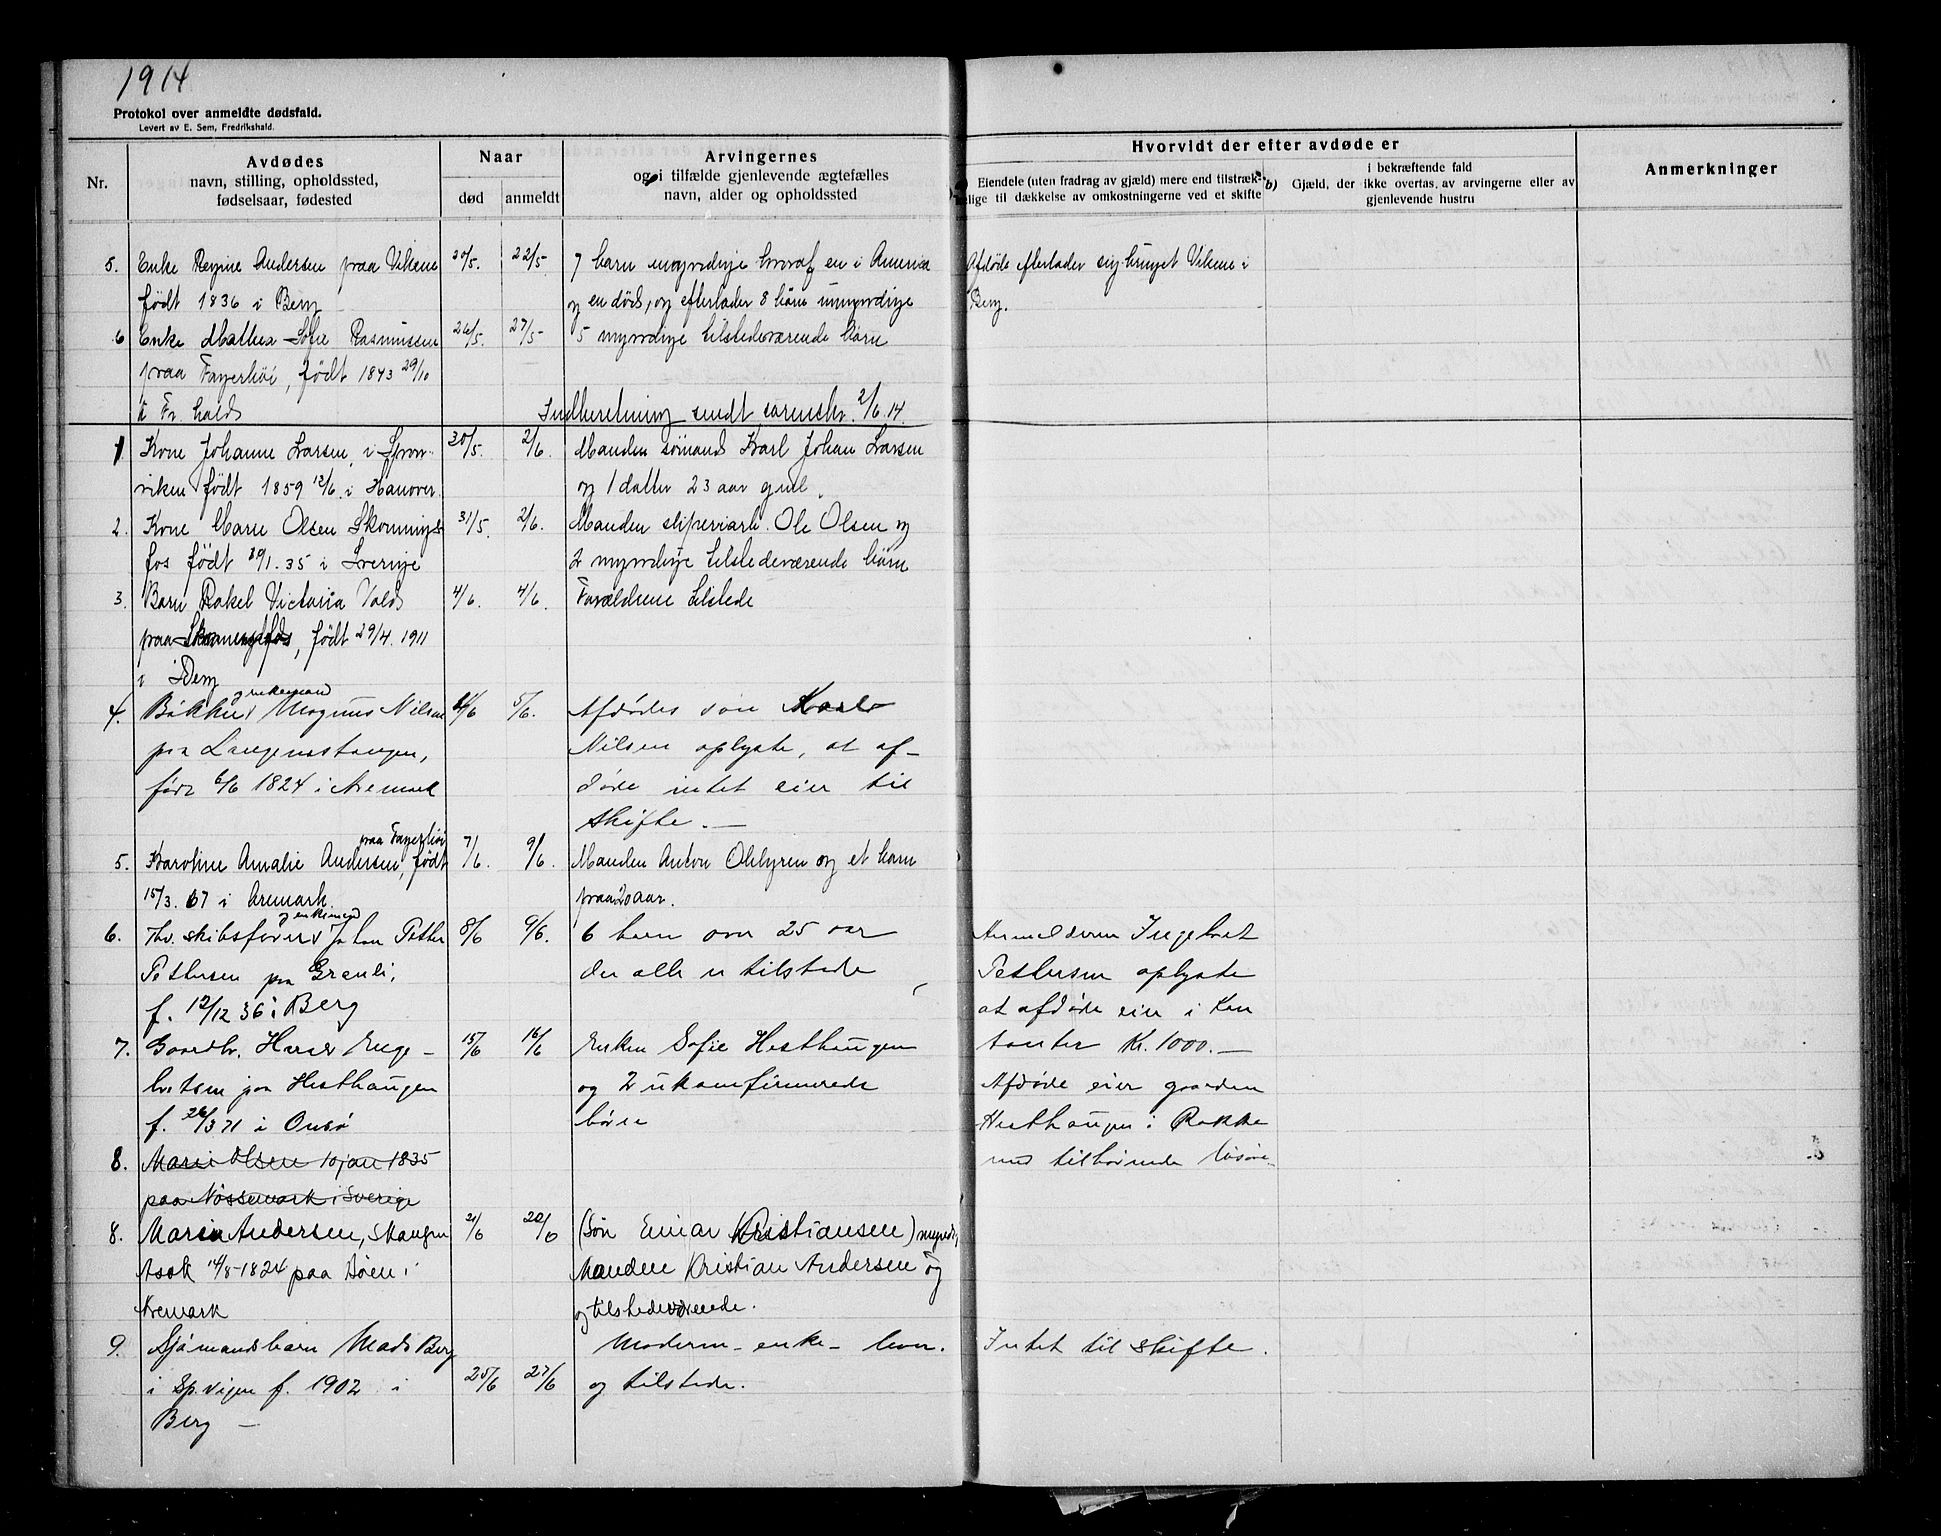 1914
Protokol over anmeldte dødsfald.
Levert av E. Sem, Fredrikshald.
Nr.
Avdødes
navn, stilling, opholdssted,
fødselsaar, fødested
Naar
død
anmeldt
Arvingernes
og i tilfælde gjenlevende ægtefælles
navn, alder og opholdssted
Hvorvidt der efter avdøde er
Eiendele (uten fradrag av gjæld) mere end tilstræk-
lige til dækkelse av omkostningerne ved et skifte
b)
i bekræftende fald
Gjæld, der ikke overtas av arvingerne eller av
gjenlevende hustru
Anmerkninger
5. Enke Regine Andersen paa Vikene 20/5. 22/5 7 barn myndige hvoraf en i America Afdøde efterlader sig bruget Vikene i
født 1836 i Berg og en død, og efterlader 8 børn umyndige Berg.
6 Enke Mathea Sofie Rasmussen 26/5. 27/5 5 myndige tilstedeværende børn
paa Fagerhøi, født 1843 29/10
Fr hald
Indberetning sendt sorenskr. 2/6 14.
1 Kone Johanne Larsen, i Spon- 30/5. 2/6. Manden sømand Karl Johan Larsen
viken født 1859 12/6. i Hanover. og 1 datter 23 aar gml.
2. Kone Marie Olsen Skonnings- 31/5. 2/6. Manden sliperiarb. Ole Olsen og
fos født 1. 35 i Sverige 2 myndige tilstedeværende børn
3. Barn Rakel Victoria Vold 4/6. 4/6. Forældrene tilstede
paa , født 29/4. 1911
i Berg
enkemand
4. Magnus Nilsen 4/6 5/6. Afdødes søn Karl
paa Langenestangen, Nilsen oplyste, at af-
født 6/6 1824 i Aremark døde intet eier til
skifte. —
paa Fagerhøi
5. Karoline Amalie Andersen, født 7/6. 9/6. Manden Anton og et barn
15/3. 67 i Aremark. paa 20 aar.
enkemand
6. fhv. skibsfører Johan Petter 8/6 9/6. 6 barn over 25 aar Anmelderen Ingebret
Pettersen paa Grenli, der alle er tilstede Pettersen oplyste
f. 12/12 36 i Berg at afdøde eier i Kon
7. Gaardbr. Hans Enge- 15/6 16/6 Enken Sofie Hesthaugen tanter Kr. 1000. —
bretsen paa Hesthaugen og 2 ukonfirmerede Afdøde eier gaarden
f. 26/3 71 i Onsø børn Hesthaugen i Rokke
8. Marie Olsen 10 jan 1835 med tilhørende løsøre
paa Nössemark i Sverige
8. Maria Andersen, 21/6 22/6 (Søn Einar Kristiansen) myndi,
Asak 14/8-1824 paa i Manden Kristian Andersen og
Aremark og tilstedeværende.
9. Sjømandsbarn Mads Berg Moderen - enke - Intet til skifte.
i Sp.vigen f. 1902 i 25/6 27/6 og tilstede.
Berg —